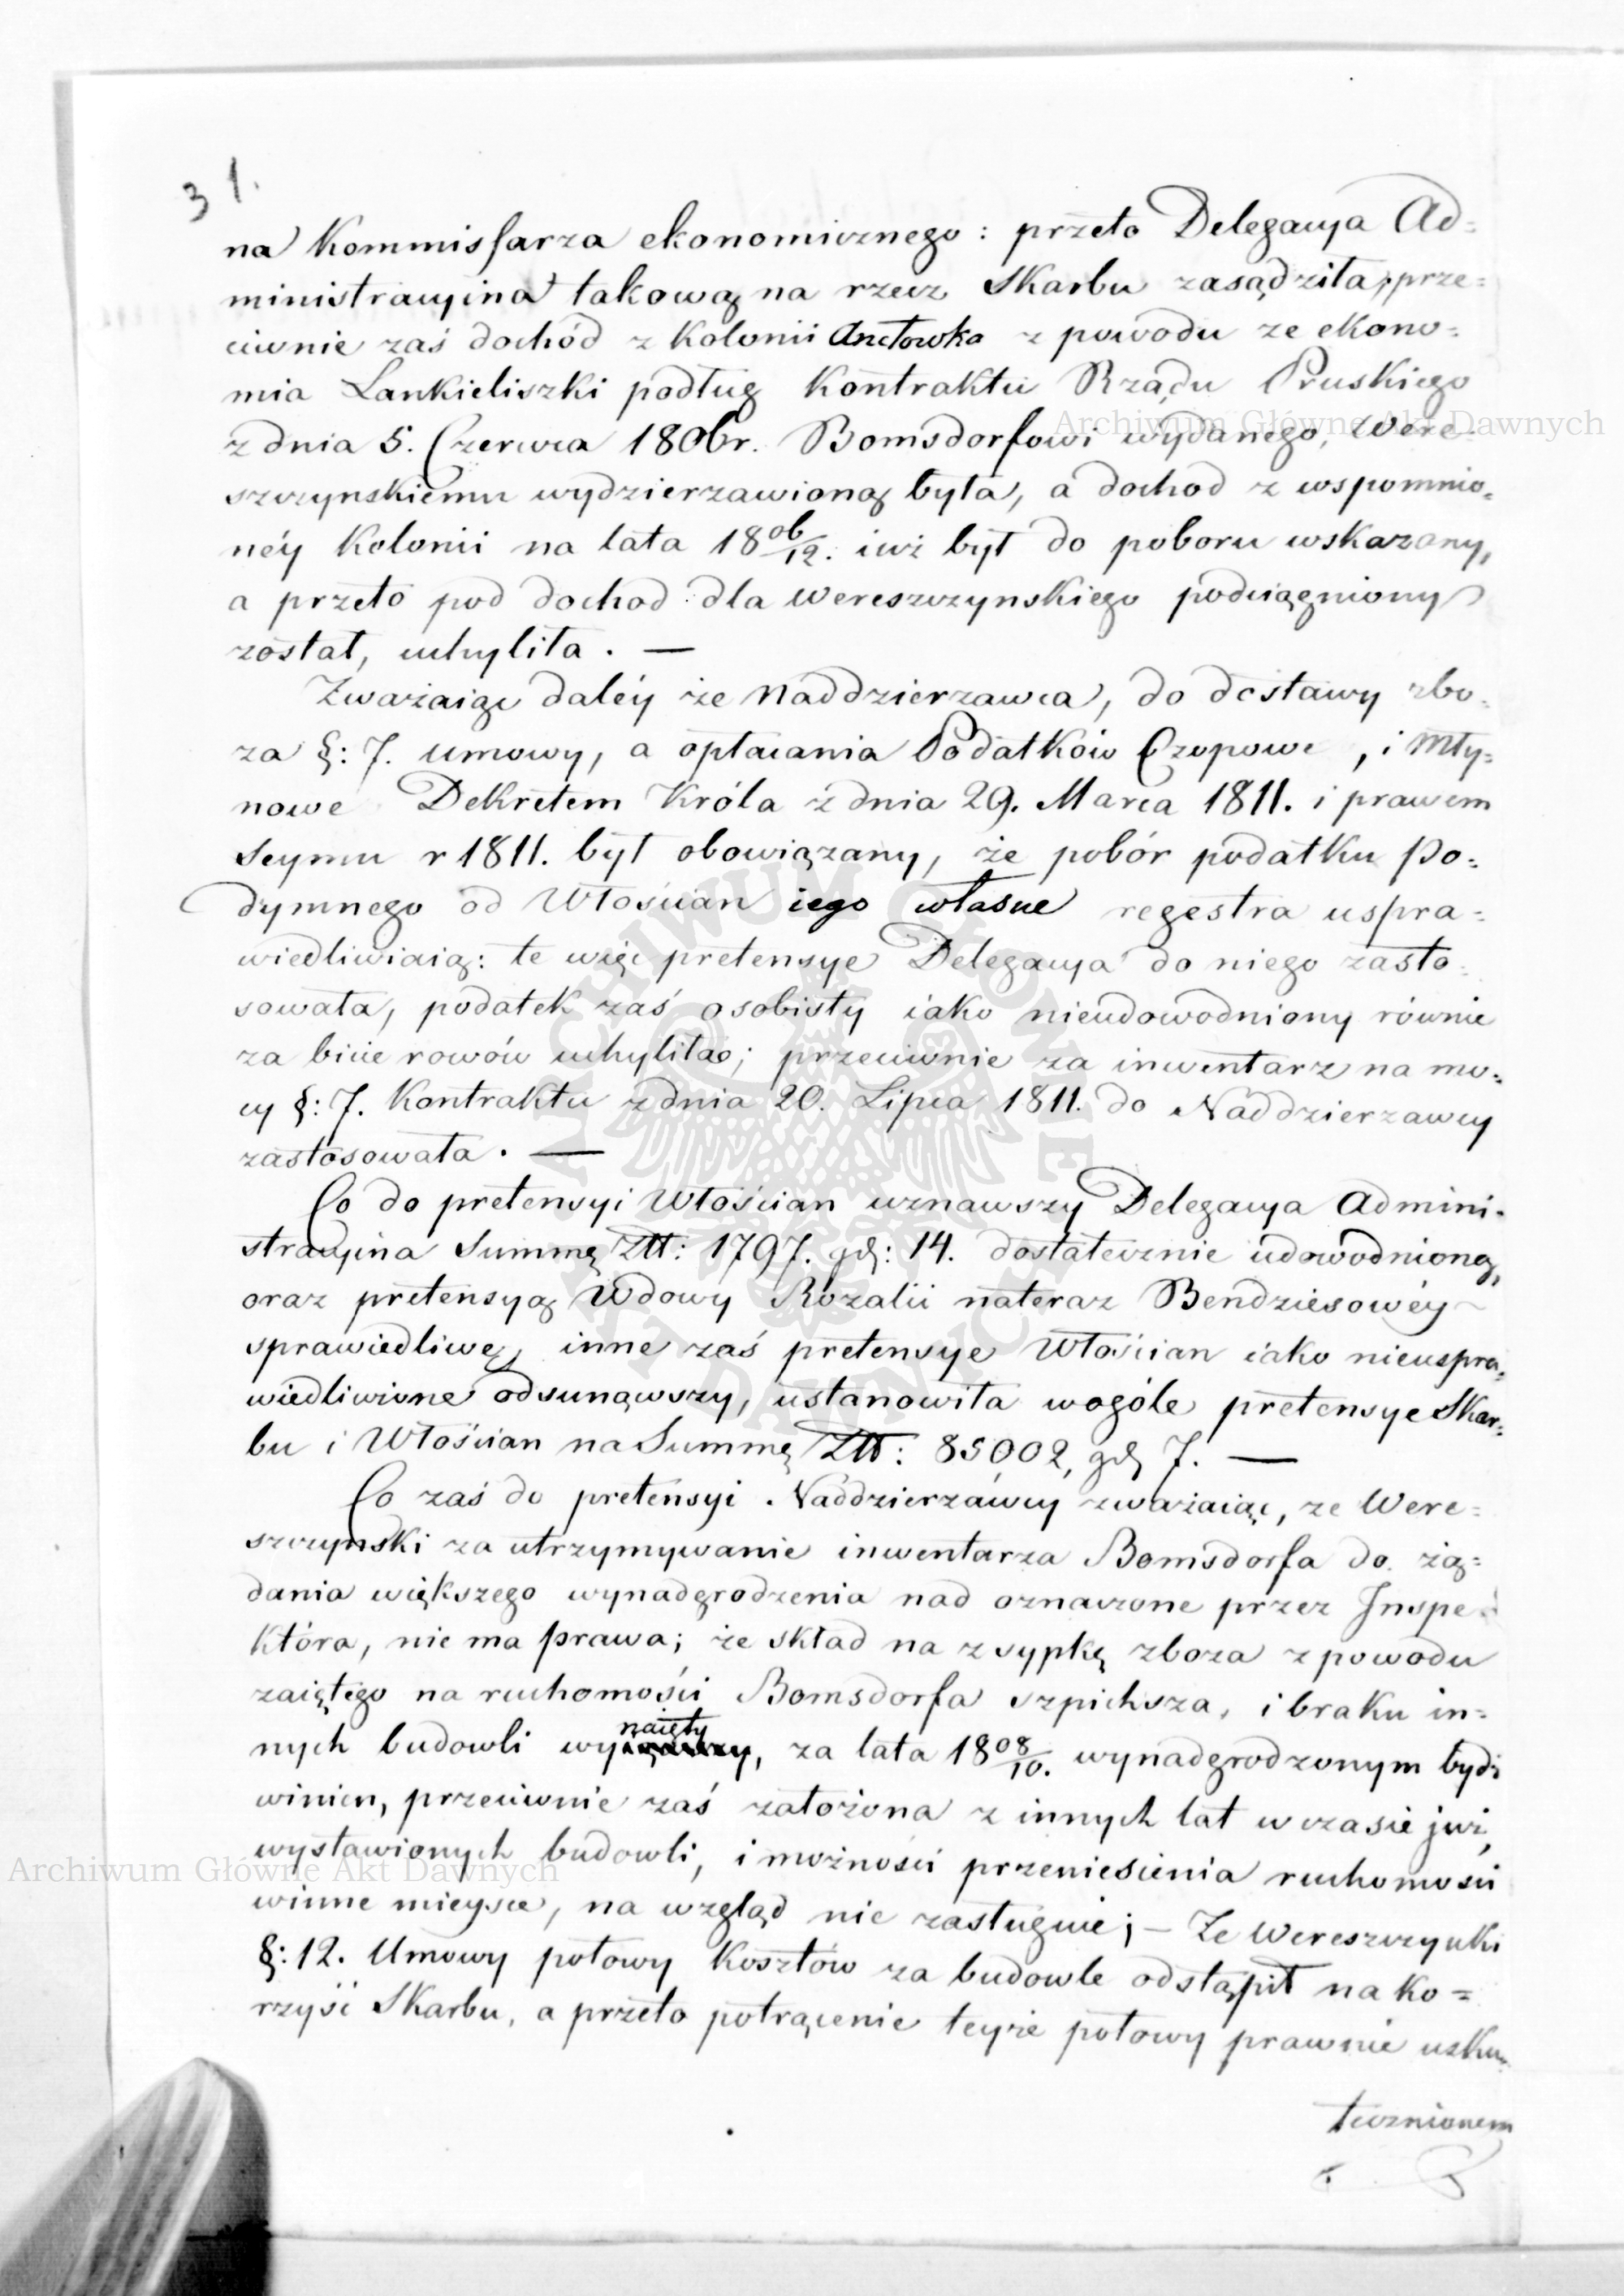 31.
na Kommissarza ekonomicznego : przeto Delegacya Ad=
ministracyina takową na rzecz Skarbu zasądziła, prze=
ciwnie zaś dochód z Kolonii Anctowka z powodu ze ekono=
mia Lankieliszki podług Kontraktu Rządu Pruskiego
z dnia 5. Czerwca 1806 r. Bomsdorfowi wydanego, Were=
szczynskiemu wydzierzawioną była, a dochod z wspomnio=
néy Kolonii na lata 18 06/12. iuż był do poboru wskazany,
a przeto pod dochod dla Wereszczynskiego podciągniony
został, uchyliła . —
Zważaiąc daléy że Naddzierzawca, do dostawy zbo=
za §: 7. umowy, a opłacania Podatków Czopowe , i Mły=
nowe Dekretem Króla z dnia 29. Marca 1811. i prawem
Seymu r 1811. był obowiązany, że pobór podatku Po=
dymnego od Włościan iego własne regestra uspra=
wiedliwiaią: te więc pretensye Delegacya do niego zasto=
sowała, podatek zaś osobisty iako nieudowodniony równie
za bicie rowów uchyliła; przeciwnie za inwentarz na mo=
cy §: 7. Kontraktu z dnia 20. Lipca 1811. do Naddzierzawcy
zastosowała . —
Co do pretensyi Włościan uznawszy Delegacya Admini=
stracyina Summę Złł: 1797. gd: 14. dostatecznie udowodnioną,
oraz pretensyą Wdowy Rozalii nateraz Bendziesowéy
sprawiedliwę, inne zaś pretensye Włościan iako nieuspra=
wiedliwione odsunąwszy, ustanowiła wogóle pretensye Skar=
bu i Włościan na Summę Złł: 85002, gd 7. —
Co zaś do pretensyi Naddzierzawcy zważaiąc, ze Were=
szczynski za utrzymywanie inwentarza Bomsdorfa do żą=
dania większego wynadgrodzenia nad oznaczone przez Inspe=
która, nie ma prawa; że skład na zsypkę zboza z powodu
zaiętego na ruchomości Bomsdorfa szpichrza, i braku in=
nych budowli wynaięty, za lata 18 08/10. wynadgrodzonym bydź
winien, przeciwnie zaś założona z innych lat w czasie już
wystawionych budowli, i możności przeniesienia ruchomości
winne mieysce, na wzgląd nie zasługuie; — Że Wereszczynski
§: 12. Umowy połowy Kosztów za budowle odstąpił na ko=
rzyść Skarbu, a przeto potrącenie teyże połowy prawnie usku=
tecznionem